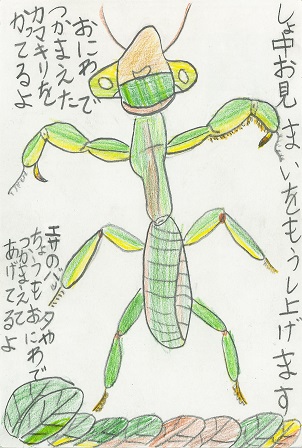 しょ中お見まいをもうし上げます
おにわで
つかまえた
カマキリを
かてるよ
エサのバッタや
ちょうもおにわで
つかまえて
あげてるよ